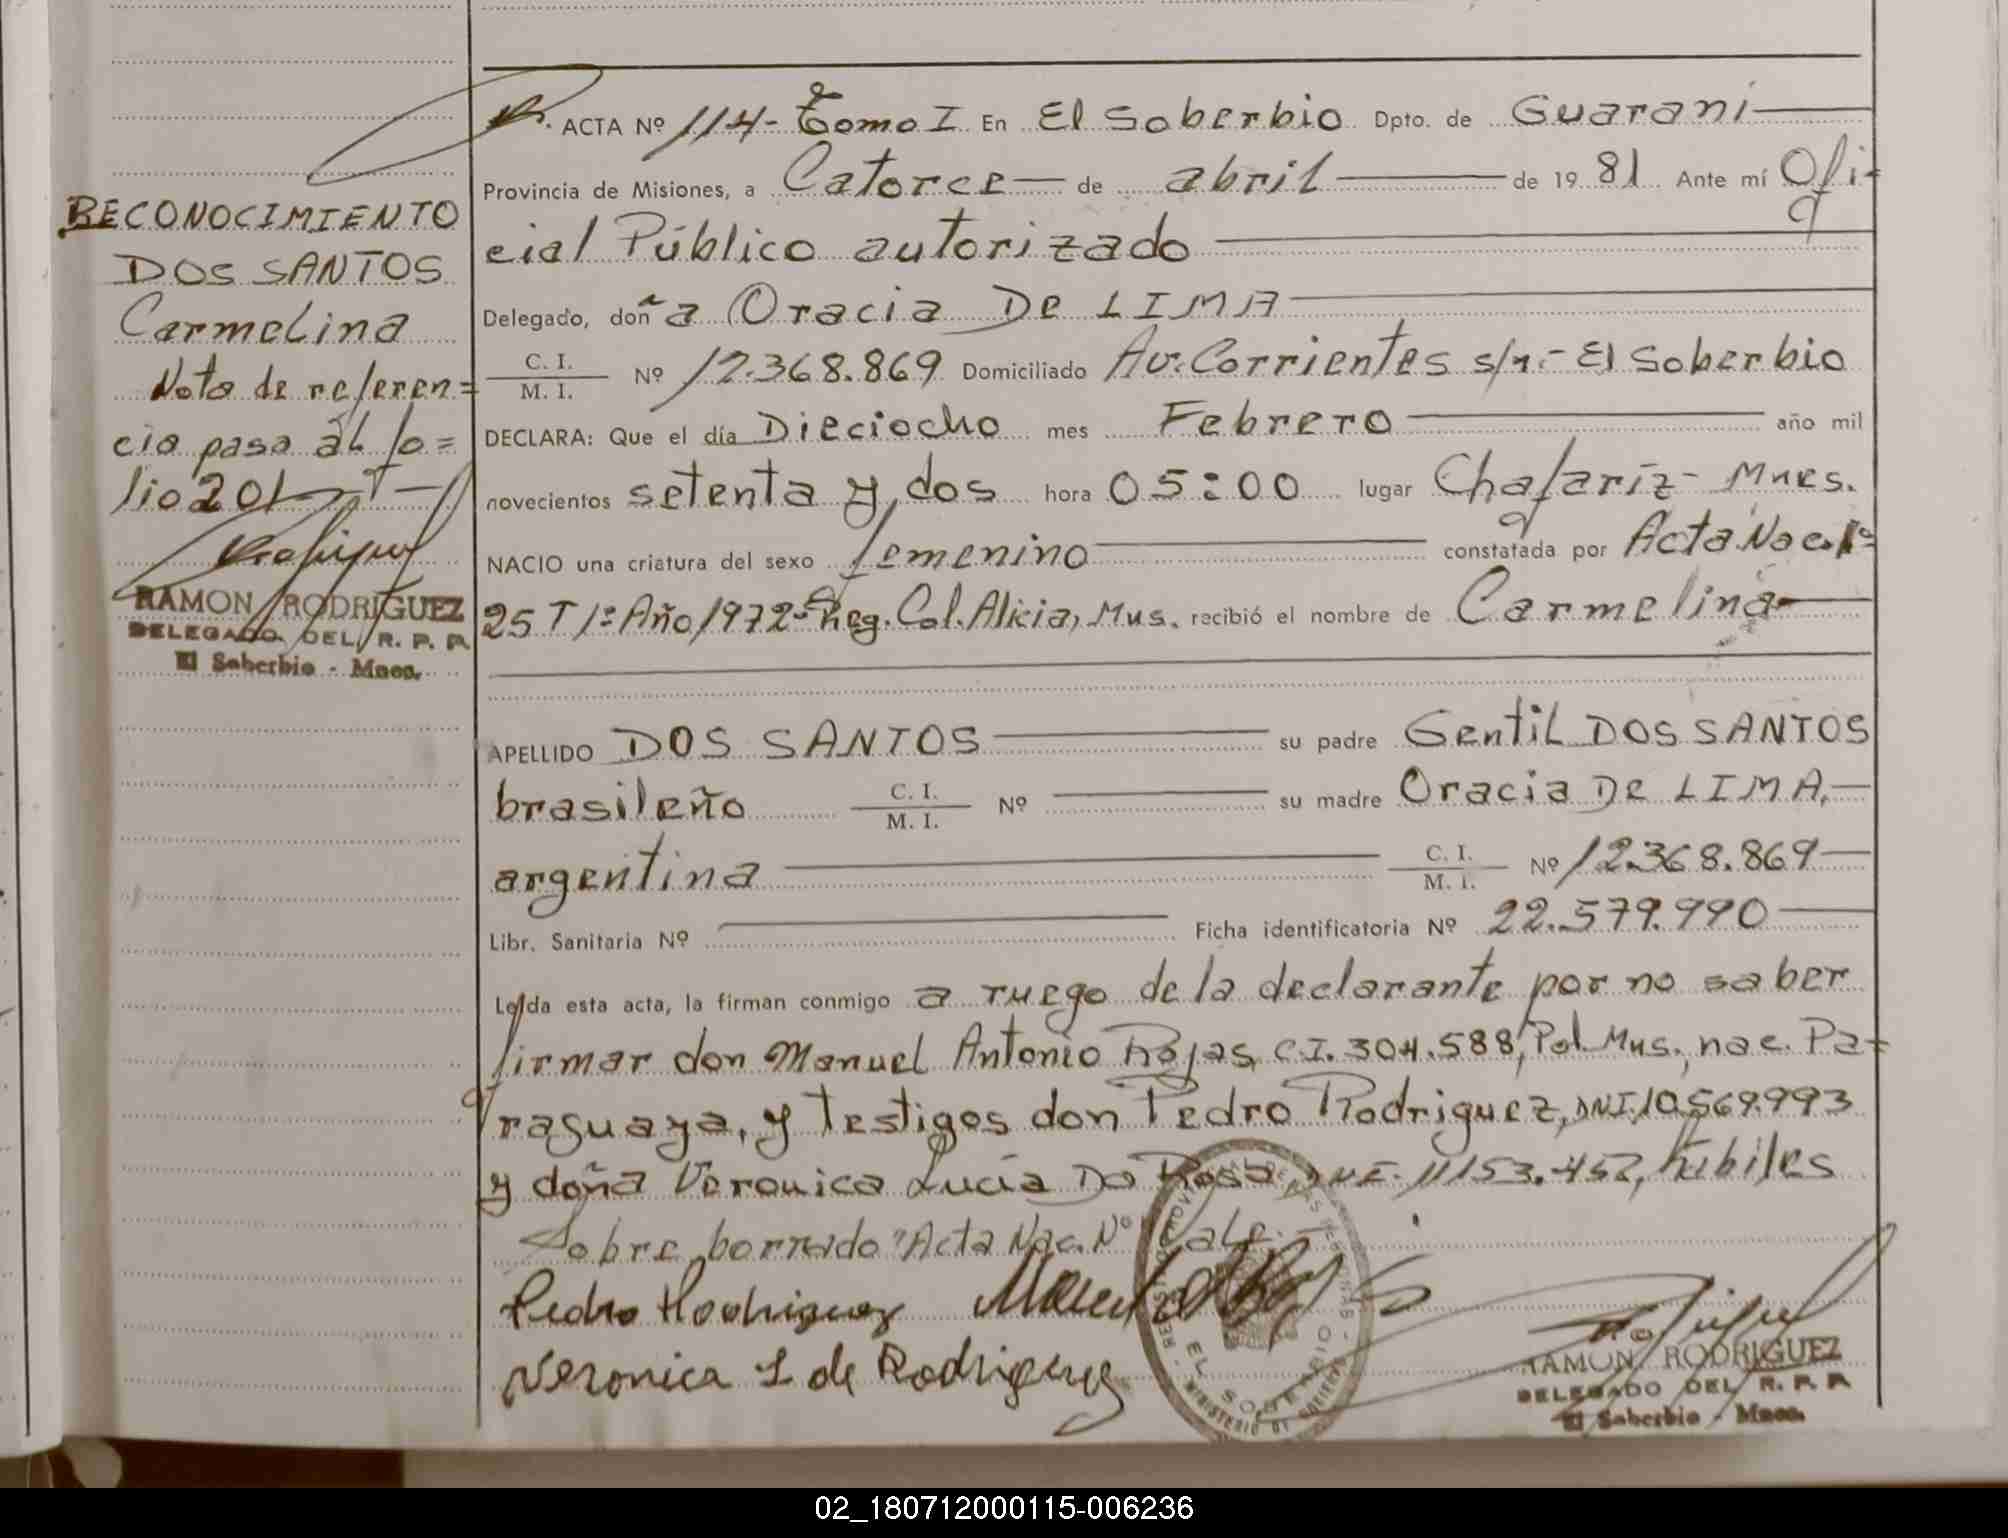 RECONOCIMIENTO
DOS SANTOS
Carmelina
Nota de referen=
cia pasa al fo=
lio 201
RAMON RODRIGUEZ
DELEGADO DEL R. P. P.
El Soberbio - Mnes.
R. ACTA Nº 114- Tomo I En El Soberbio Dpto. de Guarani
Provincia de Misiones, a Catorce de abril de 19 81 Ante mí Ofi-
cial Público autorizado
Delegado, doña Oracia De LIMA
C. I.
M. I. Nº 12.368.869 Domiciliado Av. Corrientes s/n.- El Soberbio
DECLARA: Que el día Dieciocho mes Febrero año mil
novecientos setenta y dos hora 05:00 lugar Chafariz- Mnes.
NACIO una criatura del sexo femenino constatada por Acta Nac. Nº
25 T 1º Año 1972- Reg. Col. Alicia, Mns. recibió el nombre de Carmelina
APELLIDO DOS SANTOS su padre Gentil DOS SANTOS
brasileño C. I.
M. I. Nº su madre Oracia De LIMA,
argentina C. I.
M. I. Nº 12.368.869
Libr. Sanitaria Nº Ficha identificatoria Nº 22.579.990
Leída esta acta, la firman conmigo a ruego de la declarante por no saber
firmar don Manuel Antonio Rojas, C.I. 304.588, Pol. Mns., nac. Pa=
raguaya, y testigos don Pedro Rodriguez, DNI. 10.569.993
y doña Veronica Lucia Da Rosa, 11153.452, hábiles
Sobre borrado "Acta Nac. Nº Vale.
Pedro Rodriguez
Veronica L de Rodriguez
EL SOBERBIO
MINISTERIO DE GOBIERNO
RAMON RODRIGUEZ
DELEGADO DEL R. P. P.
El Soberbio - Mnes.
02_180712000115-006236